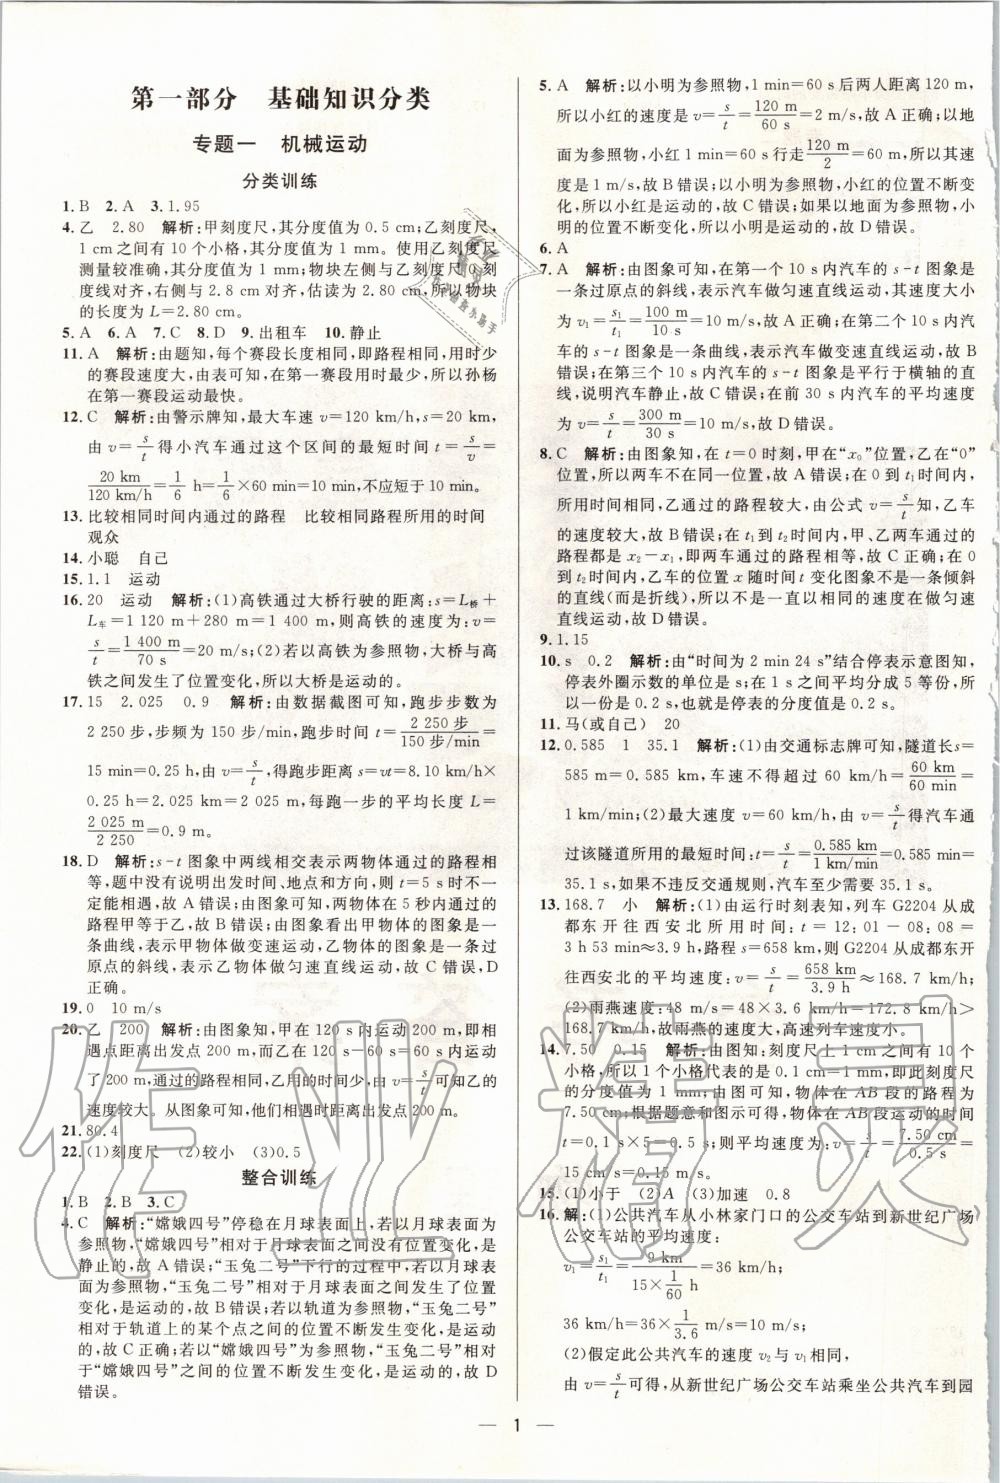 第一部分　基础知识分类
专题一　机械运动
分类训练
1.B　2.A　3.1.95
4.乙　2.80　解析:甲刻度尺,其分度值为0.5 cm;乙刻度尺,
1 cm之间有10个小格,其分度值为1 mm。使用乙刻度尺
测量较准确,其分度值为1 mm;物块左侧与乙刻度尺0刻
度线对齐,右侧与2.8 cm对齐,估读为0,所以物块
的长度为L=2.80 cm。
5.A　6.A　7.C　8.D　9.出租车　10.静止
11.A　解析:由题知,每个赛段长度相同,即路程相同,用时少
的赛段速度大,由表可知,在第一赛段用时最少,所以孙杨
在第一赛段运动最快。
12.C　解析:由警示牌知,最大车速v=120 km/h,s=20 km,
由v=s/t得小汽车通过这个区间的最短时间t=s/v=
20 km/120 km/h=1/6 h=1/6×60 min=10 min,不应短于10 min。
13.比较相同时间内通过的路程　比较相同路程所用的时间
观众
14.小聪　自己
15.1.1　运动
16.20　运动　解析:(1)高铁通过大桥行驶的距离:s=L桥+
L车=1 120 m+280 m=1 400 m,则高铁的速度为:v=
s/t=1 400 m/70 s=20 m/s;(2)若以高铁为参照物,大桥与高
铁之间发生了位置变化,所以大桥是运动的。
17.15　2.025　0.9　解析:由数据截图可知,跑步步数为
2 250步,步频为150步/min,跑步时间t=2 250步/150步/min=
15 min=0.25 h,由v=s/t,得跑步距离s=vt=8.10 km/h×
0.25 h=2.025 km=2 025 m,每跑一步的平均长度L=
2 025 m/2 250=0.9 m。
18.D　解析:s-t图象中两线相交表示两物体通过的路程相
等,题中没有说明出发时间、地点和方向,则t=5 s时不一
定能相遇,故A错误;由图象可知,两物体在5秒内通过的
路程甲等于乙,故B错误;由图象看出甲物体的图象是一
条曲线,表示甲物体做变速运动,乙物体的图象是一条过
原点的斜线,表示乙物体做匀速直线运动,故C错误,D
正确。
19.0　10 m/s
20.乙　200　解析:由图象知,甲在120 s内运动200 m,即相
遇点距离出发点200 m,而乙在120 s-60 s=60 s内运动
了200 m,通过的路程相等,乙用的时间少,由v=s/t可知乙的
速度较大。从图象可知,他们相遇时距离出发点200 m。
21.80.4
22.(1)刻度尺　(2)较小　(3)0.5
整合训练
1.B　2.B　3.C
4.C　解析:“嫦娥四号”停稳在月球表面上,若以月球表面为参
照物,“嫦娥四号”相对于月球表面没有位置变化,是静止
的,故A错误;“玉兔二号”下行的过程中,若以月球表面
为参照物,“玉兔二号”相对于月球表面之间发生了位置
变化,是运动的,故B错误;若以轨道为参照物,“玉兔二号”
相对于轨道上的某个点之间的位置不断发生变化,是运动
的,故C正确;若以“嫦娥四号”为参照物,“玉兔二号”相对
于“嫦娥四号”之间的位置不断发生变化,是运动的,故D
错误。
5.A　解析:以小明为参照物,1 min=60 s后两人距离120 m,
所以小红的速度是v=s/t=120 m/60 s=2 m/s,故A正确;以地
面为参照物,小红1 min=60 s行走120 m/2=60 m,所以其速
度是1 m/s,故B错误;以小明为参照物,小红的位置不断变
化,所以小红是运动的,故C错误;如果以地面为参照物,小
明的位置不断变化,所以小明是运动的,故D错误。
6.A
7.A　解析:由图象可知,在第一个10 s内汽车的s-t图象是
一条过原点的斜线,表示汽车做匀速直线运动,其速度大小
为v=s₁/t₁=100 m/10 s=10 m/s,故A正确;在第二个10 s内汽
车的s-t图象是一条曲线,表示汽车做变速直线运动,故B
错误;在第三个10 s内汽车的s-t图象是平行于横轴的直
线,说明汽车静止,故C错误;在前30 s内汽车的平均速度
为v=s/t=300 m/30 s=10 m/s,故D错误。
8.C　解析:由图象知,在t=0时刻,甲在“x₀”位置,乙在“0”
位置,所以两车不在同一位置,故A错误;在0到t₁时间内,
所用时间相同,乙通过的路程较大,由公式v=s/t知,乙车
的速度较大,故B错误;在t₁到t₂时间内,甲、乙两车通过的
路程都是x₂-x₁,即两车通过的路程相等,故C正确;在0
到t₂时间内,乙车的位置x随时间t变化图象不是一条倾斜
的直线(而是折线),所以不是一直以相同的速度在做匀速
直线运动,故D错误。
9.1.15
10.s　0.2　解析:由“时间为2 min 24 s”结合停表示意图知,
停表外圈示数的单位是s;在1 s之间平均分成5等份,所
以一份是0.2 s,也就是停表的分度值是0.2 s。
11.马(或自己)　20
12.0.585　1　35.1　解析:(1)由交通标志牌可知,隧道长s=
585 m=0.585 km,车速不得超过60 km/h=60 km/60 min=
1 km/min;(2)最大速度v=60 km/h,由v=s/t得汽车通
过该隧道所用的最短时间:t=s/v=0.585 km/1 km/min=0.585 min=
35.1 s,如果不违反交通规则,汽车至少需要35.1 s。
13.168.7　小　解析:(1)由运行时刻表知,列车G2204从成
都东开往西安北所用时间:t=12:01-08:08=
3 h 53 min≈3.9 h,路程s=658 km,则G2204从成都东开
往西安北的平均速度:v=s/t=658 km/3.9 h≈168.7 km/h。
(2)雨燕速度:48 m/s=48×3.6 km/h=172.8 km/h>
168.7 km/h,故雨燕的速度大,高速列车速度小。
14.7.50　0.15　解析:由图知:刻度尺上1 cm之间有10个
小格,所以1个小格代表的是0.1 cm=1 mm,即此刻度尺
的分度值为1 mm;由图可知,物体在AB段的路程为
7.50 cm;根据题意和图示可得,物体在AB段运动的时间
t=0.1 s×5=0.5 s;则平均速度为:v=s/t=7.50 cm/0.5 s=
15 cm/s=0.15 m/s。
15.(1)小于　(2)A　(3)加速　0.8
16.解:(1)公共汽车从小林家门口的公交车站到新世纪广场
公交车站的平均速度:
v₁=s₁/t₁=9 km/(15×1/60 h)=36 km/h;
36 km/h=36×1/3.6 m/s=10 m/s;
(2)假定此公共汽车的速度v₂与v₁相同,
由v=s/t可得,从新世纪广场公交车站乘坐公共汽车到园
1
作业精灵